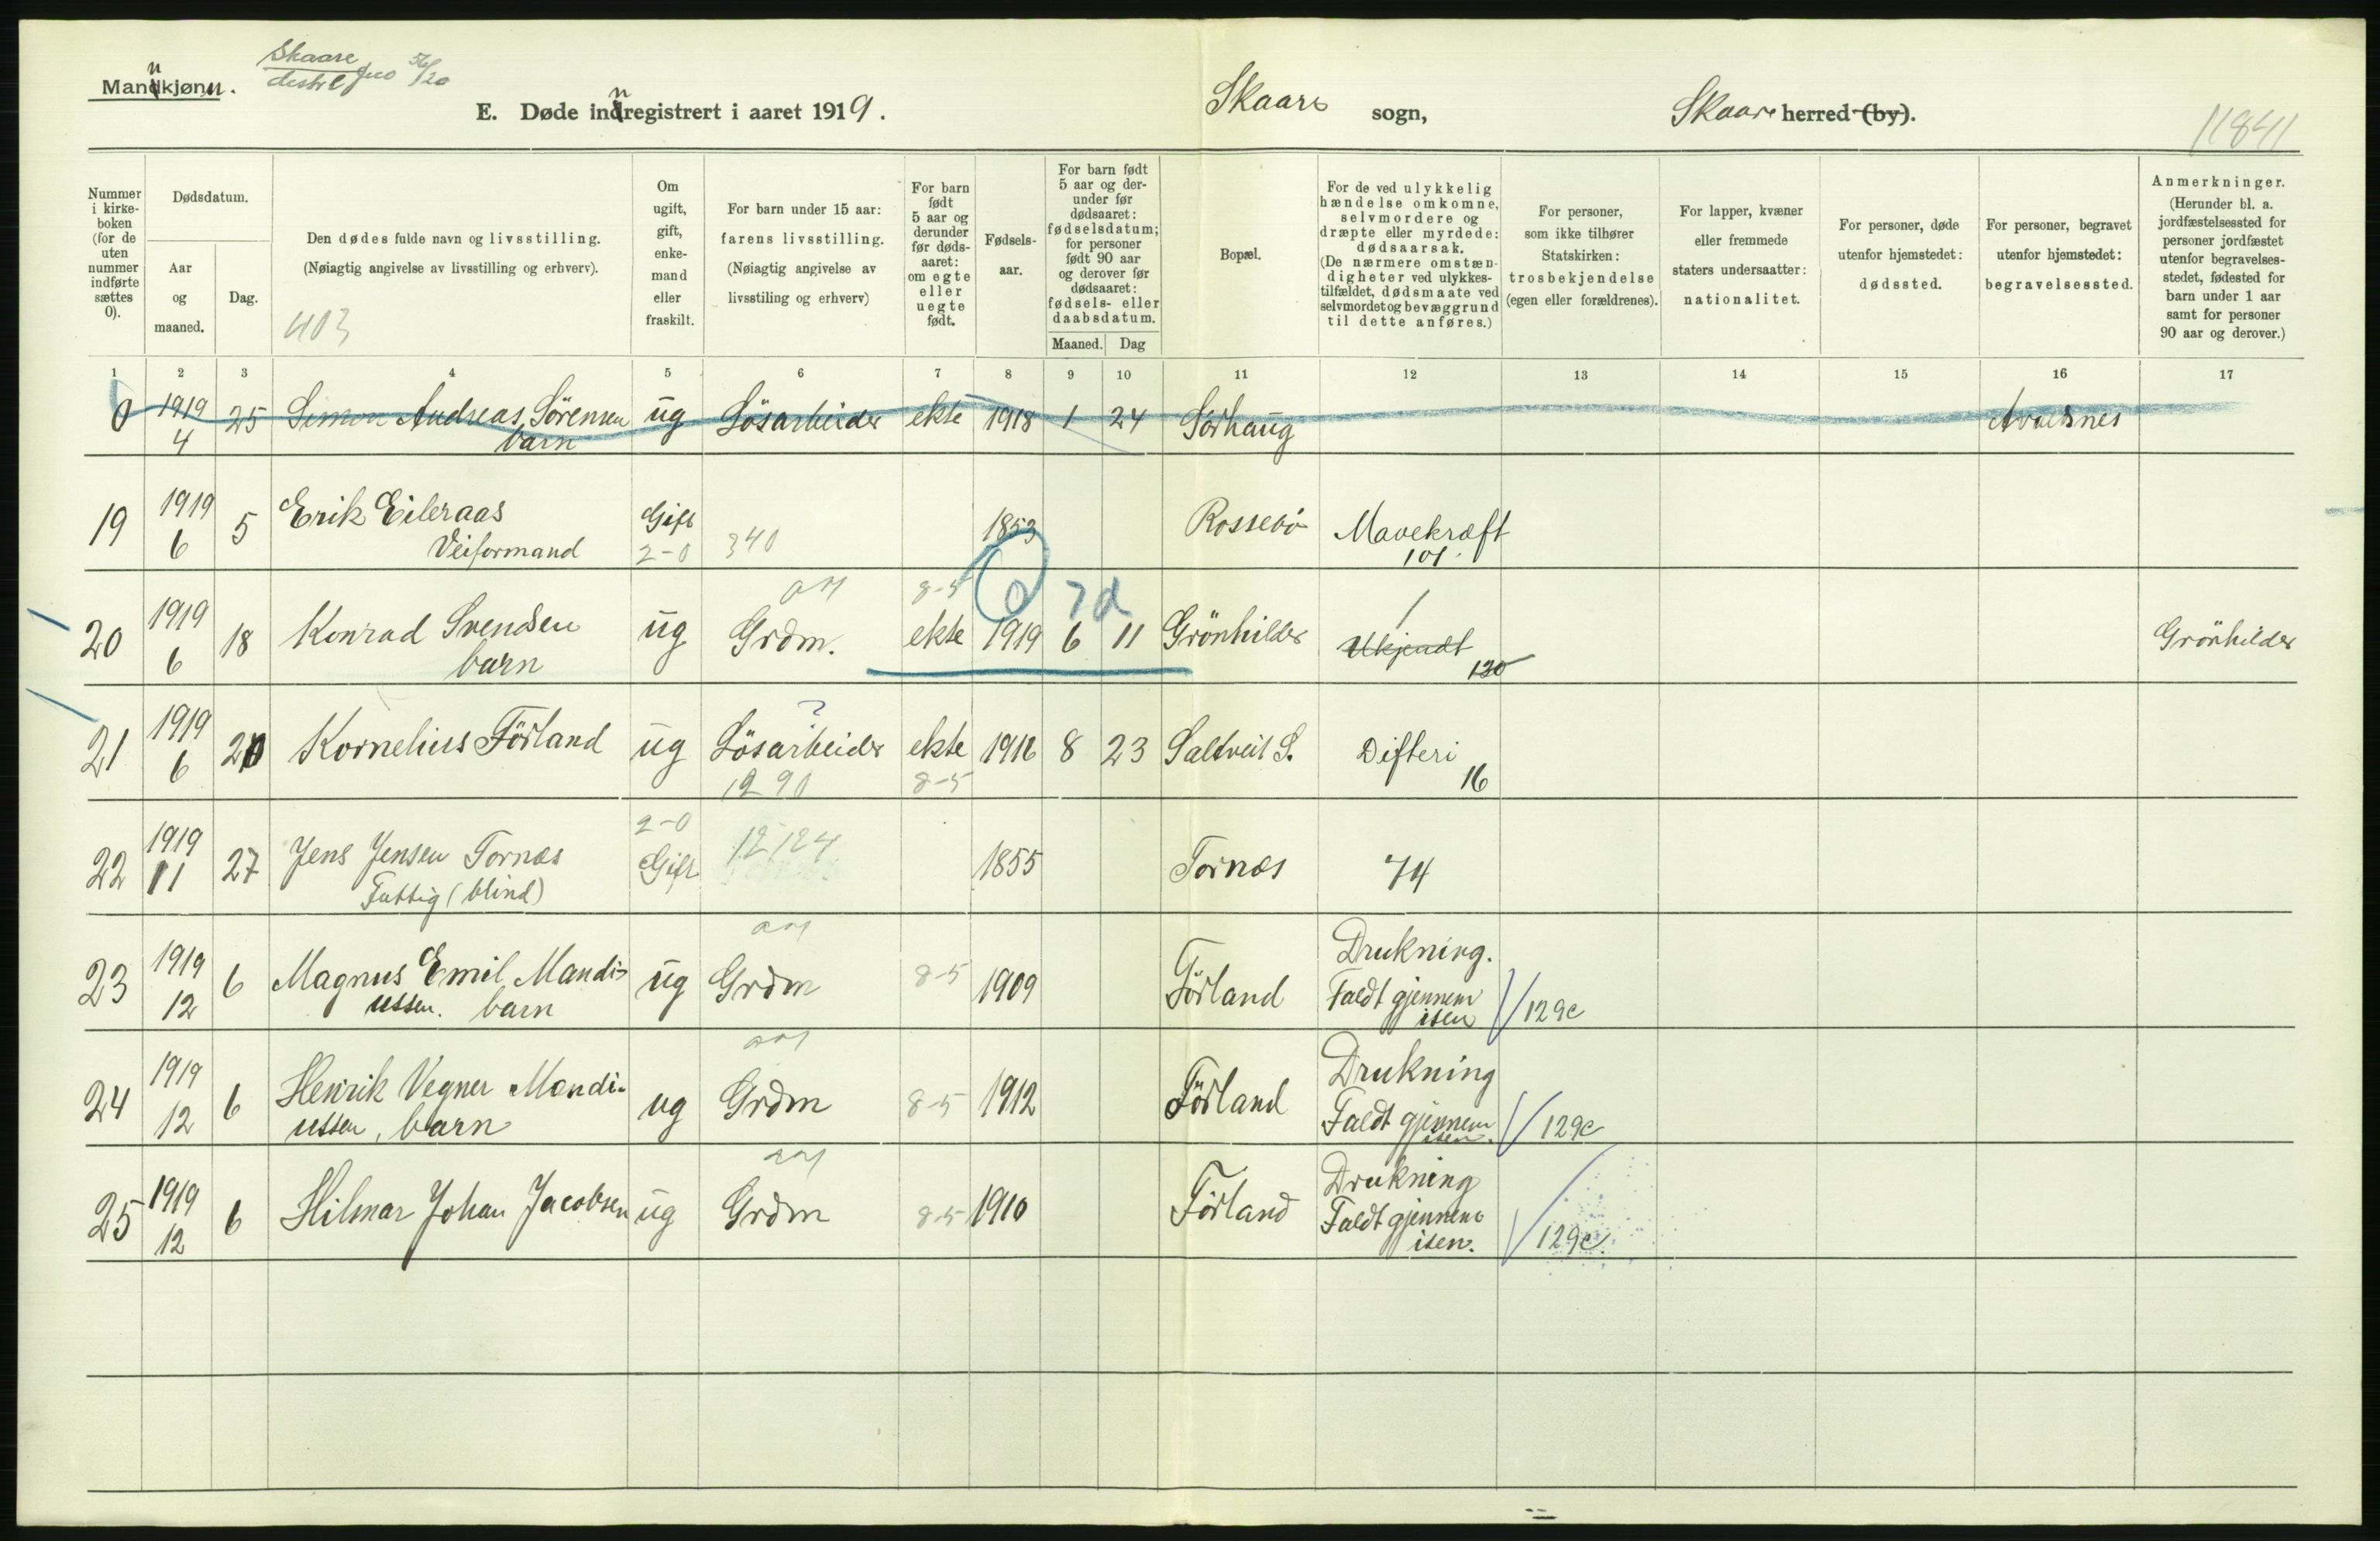 Mannkjønn.
Skaare
E. Døde innregistrert i aaret 1919.
Skaare sogn,
Skaare herred (by).
11841
Nummer i kirkeboken (for de uten nummer indførte sættes 0).
Dødsdatum.
Aar og maaned.
Dag.
Den dødes fulde navn og livsstilling.
(Nøiagtig angivelse av livsstilling og erhverv).
403
Om ugift, gift, enkemand eller fraskilt.
For barn under 15 aar:
farens livsstilling.
(Nøiagtig angivelse av livsstiling og erhverv)
For barn født 5 aar og derunder før dødsaaret: om egte eller uegte født.
Fødselsaar.
For barn født 5 aar og derunder før dødsaaret: fødselsdatum; for personer født 90 aar og derover før dødsaaret: fødsels- eller daabsdatum.
Maaned. Dag
Bopæl.
For de ved ulykkelig hændelse omkomne, selvmordere og dræpte eller myrdede: dødsaarsak.
(De nærmere omstændigheter ved ulykkestilfældet, dødsmaate ved selvmordet og bevæggrund til dette anføres.)
For personer, som ikke tilhører Statskirken: trosbekjendelse (egen eller forældrenes).
For lapper, kvæner eller fremmede staters undersaatter: nationalitet.
For personer, døde utenfor hjemstedet: dødssted.
For personer, begravet utenfor hjemstedet: begravelsessted.
Anmerkninger.
(Herunder bl. a. jordfæstelsessted for personer jordfæstet utenfor begravelsesstedet, fødested for barn under 1 aar samt for personer 90 aar og derover.)
1 2 3 4 5 6 7 8 9 10 11 12 13 14 15 16 17
0 1919 4 25 Simon Andreas Sörensen barn ug Lösarbeider ekte 1918 1 24 Sörhaug Avaldsnes
19 1919 6 5 Erik Eileraas Veiformand Gift 2-0 340 1853 Rossebö Mavekræft 101.
20 1919 6 18 Konrad Svendsen barn ug Grdm. 8-5 ekte 1919 6 11 7d Grönhilder Ukjendt 130 Grönhilder
21 1919 6 20 Kornelius Förland ug Lösarbeider ? 1290 ekte 8-5 1916 8 23 Saltveit S. Difteri 16
22 1919 11 27 Jens Jensen Tornæs Fattig (blind) 2-0 Gift 12124 1855 Tornæs 74
23 1919 12 6 Magnus Emil Mandiussen. barn ug Grdm 8-5 1909 Förland Drukning. Faldt gjennem isen 129c
24 1919 12 6 Henrik Vegner Mandiussen, barn ug Grdm 8-5 1912 Förland Drukning Faldt gjennem isen. 129c
25 1919 12 6 Hilmar Johan Jacobsen ug Grdm 8-5 1910 Förland Drukning Faldt gjennem isen. 129c